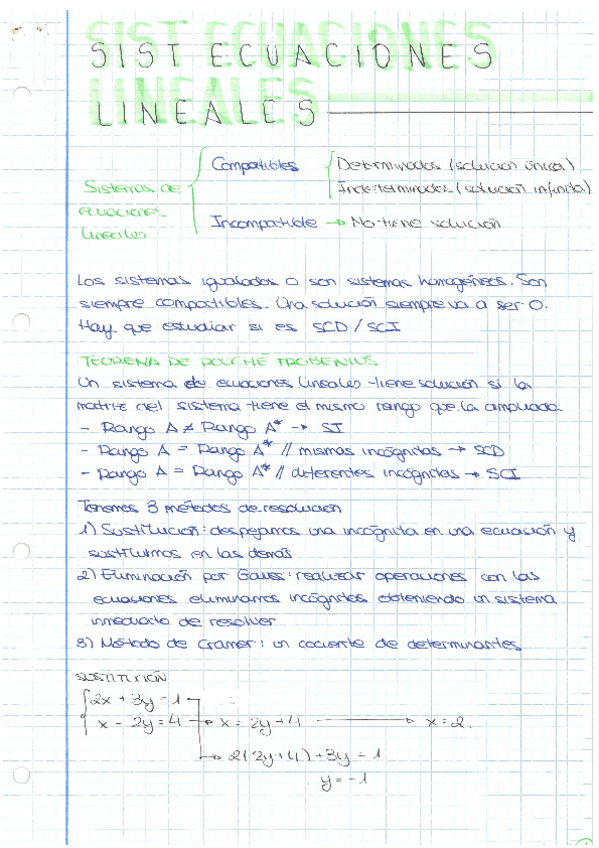 SIST ECUACIONES
LINEALES
Sistemas de ecuaciones lineales
Compatibles
Determinados (solución única)
Indeterminados (solución infinita)
Incompatible → No tiene solución
Los sistemas igualados 0 son sistemas homogéneos. Son
siempre compatibles. Una solución siempre va a ser 0.
Hay que estudiar si es SCD / SCI
TEOREMA DE ROUCHÉ FROBENIUS
Un sistema de ecuaciones lineales tiene solución si la
matriz del sistema tiene el mismo rango que la ampliada
- Rango A ≠ Rango A* → SI
- Rango A = Rango A* // mismas incógnitas → SCD
- Rango A = Rango A* // diferentes incógnitas → SCI
Tenemos 3 métodos de resolución
1) Sustitución: despejamos una incógnita en una ecuación y
sustituimos en las demás
2) Eliminación por Gauss: realizar operaciones con las
ecuaciones eliminamos incógnitas obteniendo un sistema
inmediato de resolver
3) Método de Cramer: un cociente de determinantes
SUSTITUCIÓN
2x + 3y = 1
x - 2y = 4 → x = 2y + 4 → x = 2.
2(2y + 4) + 3y = 1
y = -1